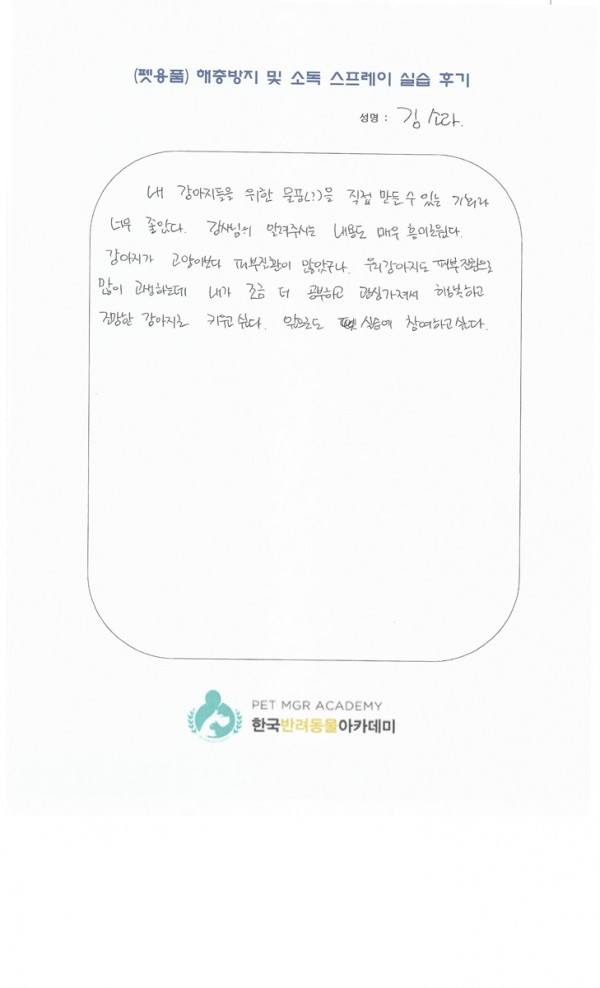 (펫용품) 해충방지 및 소독 스프레이 실습 후기
성명 : 김소라.
내 강아지들을 위한 물품(!?)을 직접 만들수 있는 기회라
너무 좋았다. 강사님의 알려주시는 내용도 매우 흥미로웠다.
강아지가 고양이보다 피부질환이 많았구나. 우리강아지도 피부질환으로
많이 고생하는데 내가 조금 더 공부하고 관심가져서 행복하고
건강한 강아지로 키우고 싶다. 앞으로도 펫 실습에 참여하고싶다.
PET MGR ACADEMY
한국반려동물아카데미